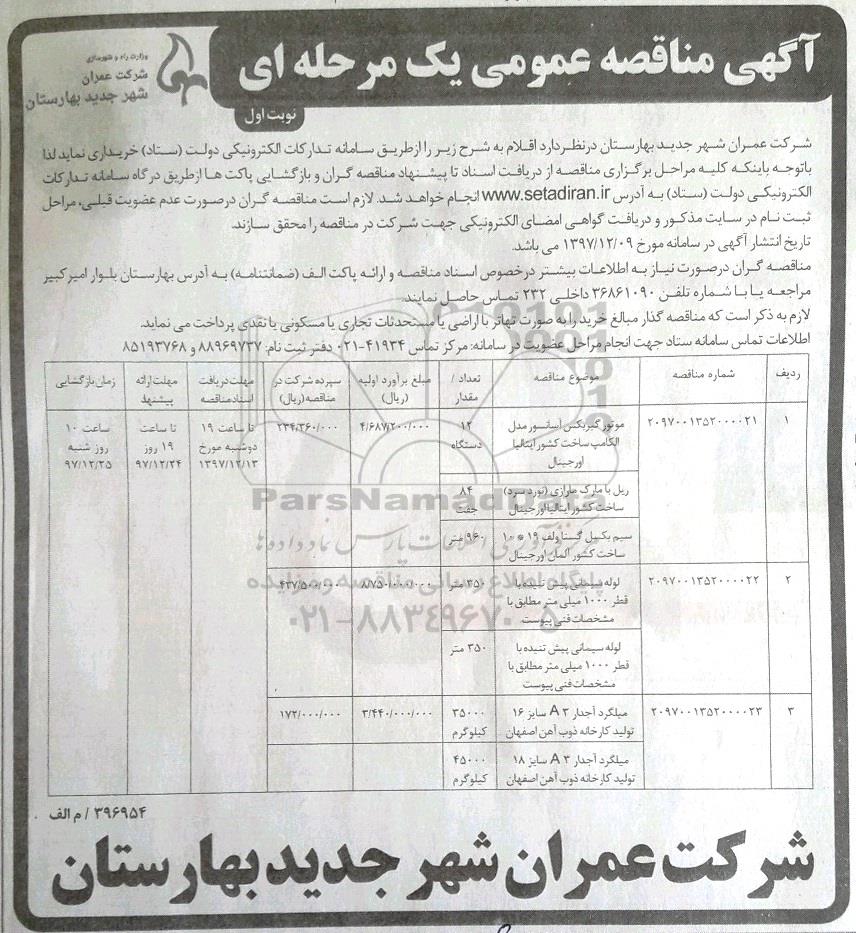 آگهی مناقصه عمومی یک مرحله ای
وزارت راه و شهرسازی
شرکت عمران
شهر جدید بهارستان
نوبت اول
شرکت عمران شهر جدید بهارستان درنظر دارد اقلام به شرح زیر را ازطریق سامانه تدارکات الکترونیکی دولت (ستاد) خریداری نماید لذا
باتوجه باینکه کلیه مراحل برگزاری مناقصه از دریافت اسناد تا پیشنهاد مناقصه گران و بازگشایی پاکت ها ازطریق درگاه سامانه تدارکات
الکترونیکی دولت (ستاد) به آدرس www.setadiran.ir انجام خواهد شد. لازم است مناقصه گران درصورت عدم عضویت قبلی، مراحل
ثبت نام در سایت مذکور و دریافت گواهی امضای الکترونیکی جهت شرکت در مناقصه را محقق سازند.
تاریخ انتشار آگهی در سامانه مورخ ۱۳۹۷/۱۲/۰۹ می باشد.
مناقصه گران درصورت نیاز به اطلاعات بیشتر درخصوص اسناد مناقصه و ارائه پاکت الف (ضمانتنامه) به آدرس بهارستان بلوار امیرکبیر
مراجعه یا با شماره تلفن ۳۶۸۶۱۰۹۰ داخلی ۲۳۲ تماس حاصل نمایند.
لازم به ذکر است که مناقصه گذار مبالغ خرید را به صورت تهاتر با اراضی یا مستحدثات تجاری یا مسکونی یا نقدی پرداخت می نماید.
اطلاعات تماس سامانه ستاد جهت انجام مراحل عضویت در سامانه: مرکز تماس ۴۱۹۳۴-۰۲۱ دفتر ثبت نام: ۸۸۹۶۹۷۳۷ و ۸۵۱۹۳۷۶۸
ردیف
شماره مناقصه
موضوع مناقصه
تعداد / مقدار
مبلغ برآورد اولیه (ریال)
سپرده شرکت در مناقصه (ریال)
مهلت دریافت اسناد مناقصه
مهلت ارائه پیشنهاد
زمان بازگشایی
۱
۲۰۹۷۰۰۱۳۵۲۰۰۰۰۲۱
موتور گیربکس آسانسور مدل
الکامپ ساخت کشور ایتالیا
اورجینال
۱۲
دستگاه
۴/۶۸۷/۲۰۰/۰۰۰
۲۳۴/۳۶۰/۰۰۰
تا ساعت ۱۹
دوشنبه مورخ
۱۳۹۷/۱۲/۱۳
تا ساعت
۱۹ روز
۹۷/۱۲/۲۴
ساعت ۱۰
روز شنبه
۹۷/۱۲/۲۵
ریل با مارک مارازی (نورد سرد)
ساخت کشور ایتالیا اورجینال
۸۴
جفت
سیم بکسل گستاولف ۱۹ * ۱۰
ساخت کشور آلمان اورجینال
۹۶۰ متر
۲
۲۰۹۷۰۰۱۳۵۲۰۰۰۰۲۲
لوله سیمانی پیش تنیده با
قطر ۱۰۰۰ میلی متر مطابق با
مشخصات فنی پیوست
۳۵۰ متر
۸/۷۵۰/۰۰۰/۰۰۰
۴۳۷/۵۰۰/۰۰۰
لوله سیمانی پیش تنیده با
قطر ۱۰۰۰ میلی متر مطابق با
مشخصات فنی پیوست
۳۵۰ متر
۳
۲۰۹۷۰۰۱۳۵۲۰۰۰۰۲۳
میلگرد آجدار A۳ سایز ۱۶
تولید کارخانه ذوب آهن اصفهان
۳۵۰۰۰
کیلوگرم
۳/۴۴۰/۰۰۰/۰۰۰
۱۷۲/۰۰۰/۰۰۰
میلگرد آجدار A۳ سایز ۱۸
تولید کارخانه ذوب آهن اصفهان
۴۵۰۰۰
کیلوگرم
ParsNamadData
پایگاه اطلاع رسانی مناقصه و مزایده
۰۲۱-۸۸۳۴۹۶۷۰-۵
۳۹۶۹۵۴ / م الف
شرکت عمران شهر جدید بهارستان